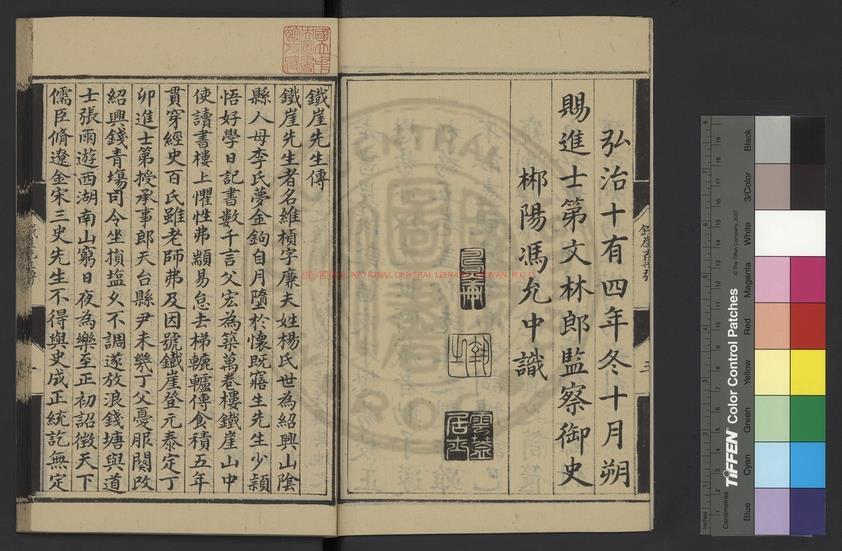 弘治十有四年冬十月朔
賜進士第文林郎監察御史
郴陽馮允中識
鐵崖先生傳
鐵崖先生者名維楨字廉夫姓楊氏世為紹興山陰
縣人母李氏夢金鉤自月墮於懷既寤生先生少穎
悟好學日記書數千言父宏為築萬卷樓鐵崖山中
使讀書樓上懼性弗顓易怠去梯轆轤傳食積五年
貫穿經史百氏雖老師弗及因號鐵崖登元泰定丁
卯進士第授承事郎天台縣尹未幾丁父憂服闋改
紹興錢青塲司令坐損盐久不調遂放浪錢塘與道
士張雨遊西湖南山窮日夜為樂至正初詔徴天下
儒臣脩遼金宋三史先生不得與史成正統訖無定
NATIONAL CENTRAL LIBRARY
TIFFEN Color Control Patches
© The Tiffen Company, 2007
Centimetres
Inches
Blue
Cyan
Green
Yellow
Red
Magenta
White
3/Color
Black